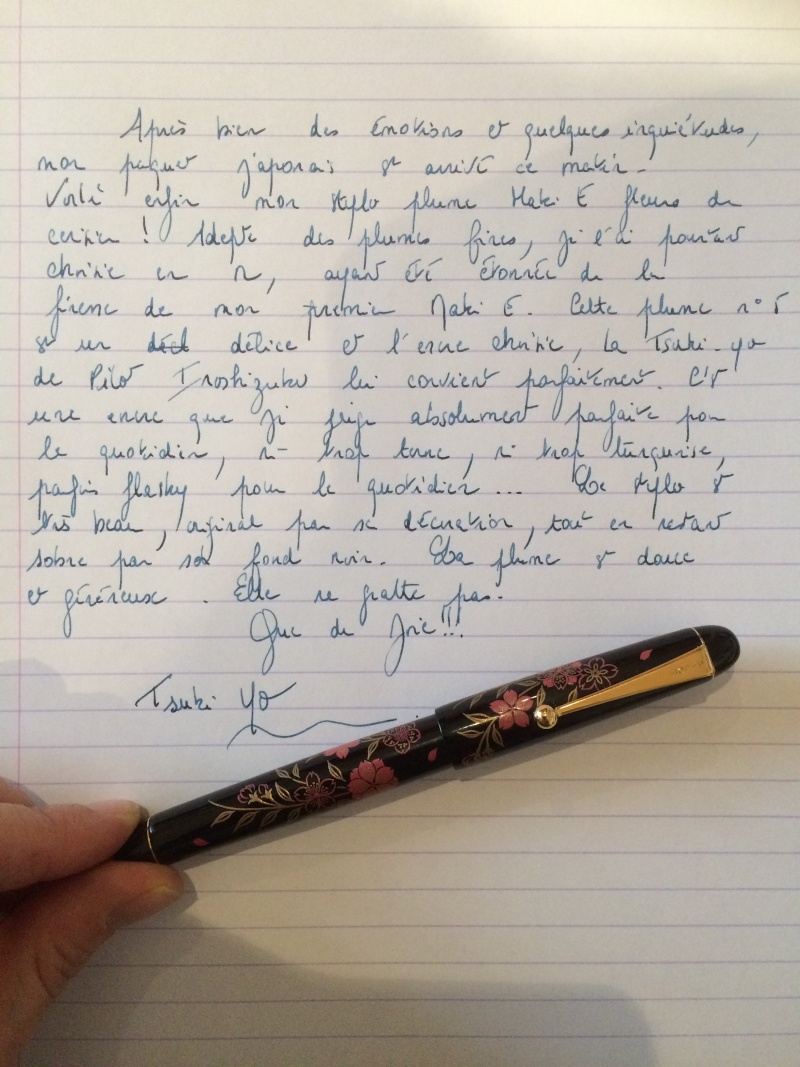 Après bien des émotions et quelques inquiétudes,
mon paquet japonais est arrivé ce matin.
Voilà enfin mon stylo plume Maki E fleurs de
cerisier ! Adepte des plumes fines, je l'ai pourtant
choisie en M, ayant été étonnée de la
finesse de mon premier Maki E. Cette plume n° 5
est un délice et l'encre choisie, la Tsuki-yo
de Pilot Iroshizuku lui convient parfaitement. C'est
une encre que je juge absolument parfaite pour
le quotidien, ni trop terne, ni trop turquoise,
parfois flashy pour le quotidien ... Le stylo est
très beau, original par sa décoration, tout en restant
sobre par son fond noir. La plume est douce
et généreuse. Elle ne gratte pas.
Que de Joie !!!
Tsuki Yo